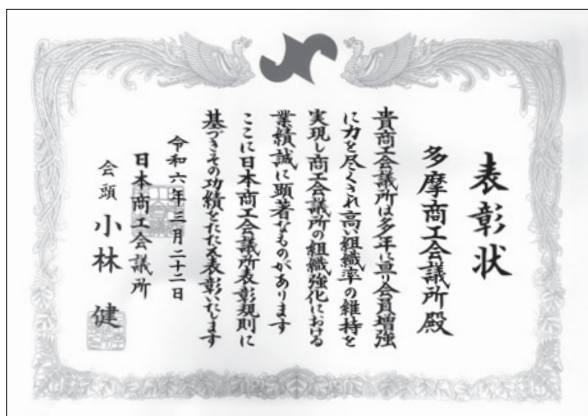 表彰状
多摩商工会議所殿
貴商工会議所は多年に亘り会員増強
に力を尽くされ高い組織率の維持を
実現し商工会議所の組織強化における
業績誠に顕著なものがあります
ここに日本商工会議所表彰規則に
基づきその功績をたたえ表彰いたします
令和六年三月二十二日
日本商工会議所
会頭 小林 健